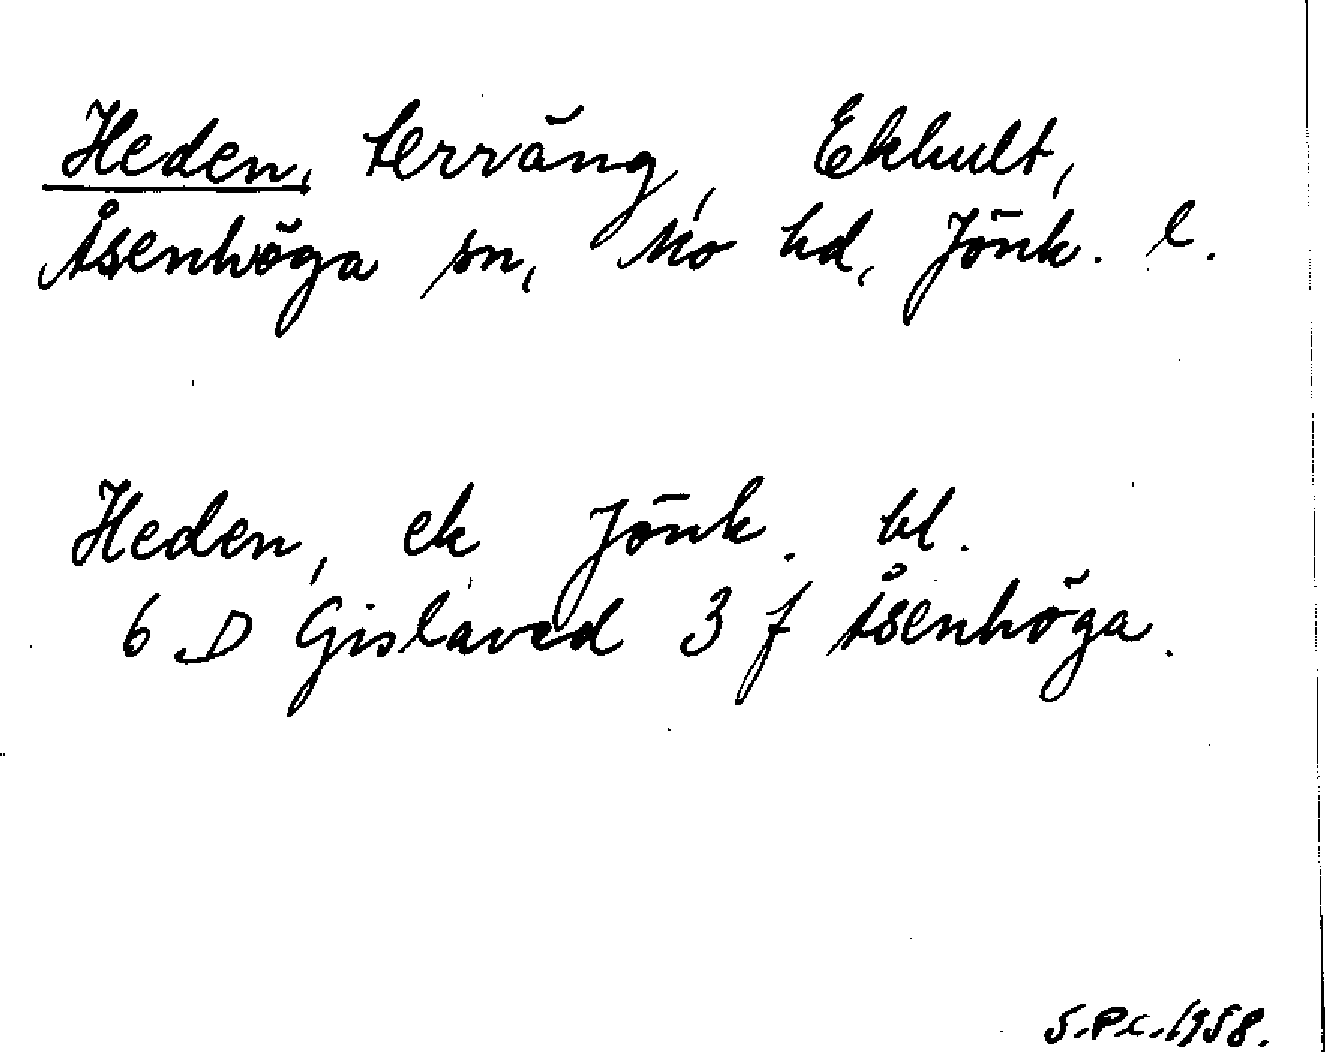 Heden, terräng, Ekhult,
Åsenhöga sn, Mo hd, Jönk. l.
Heden, ek Jönk. bl.
6 D Gislaved 3 f Åsenhöga.
S.P.C. 1958.